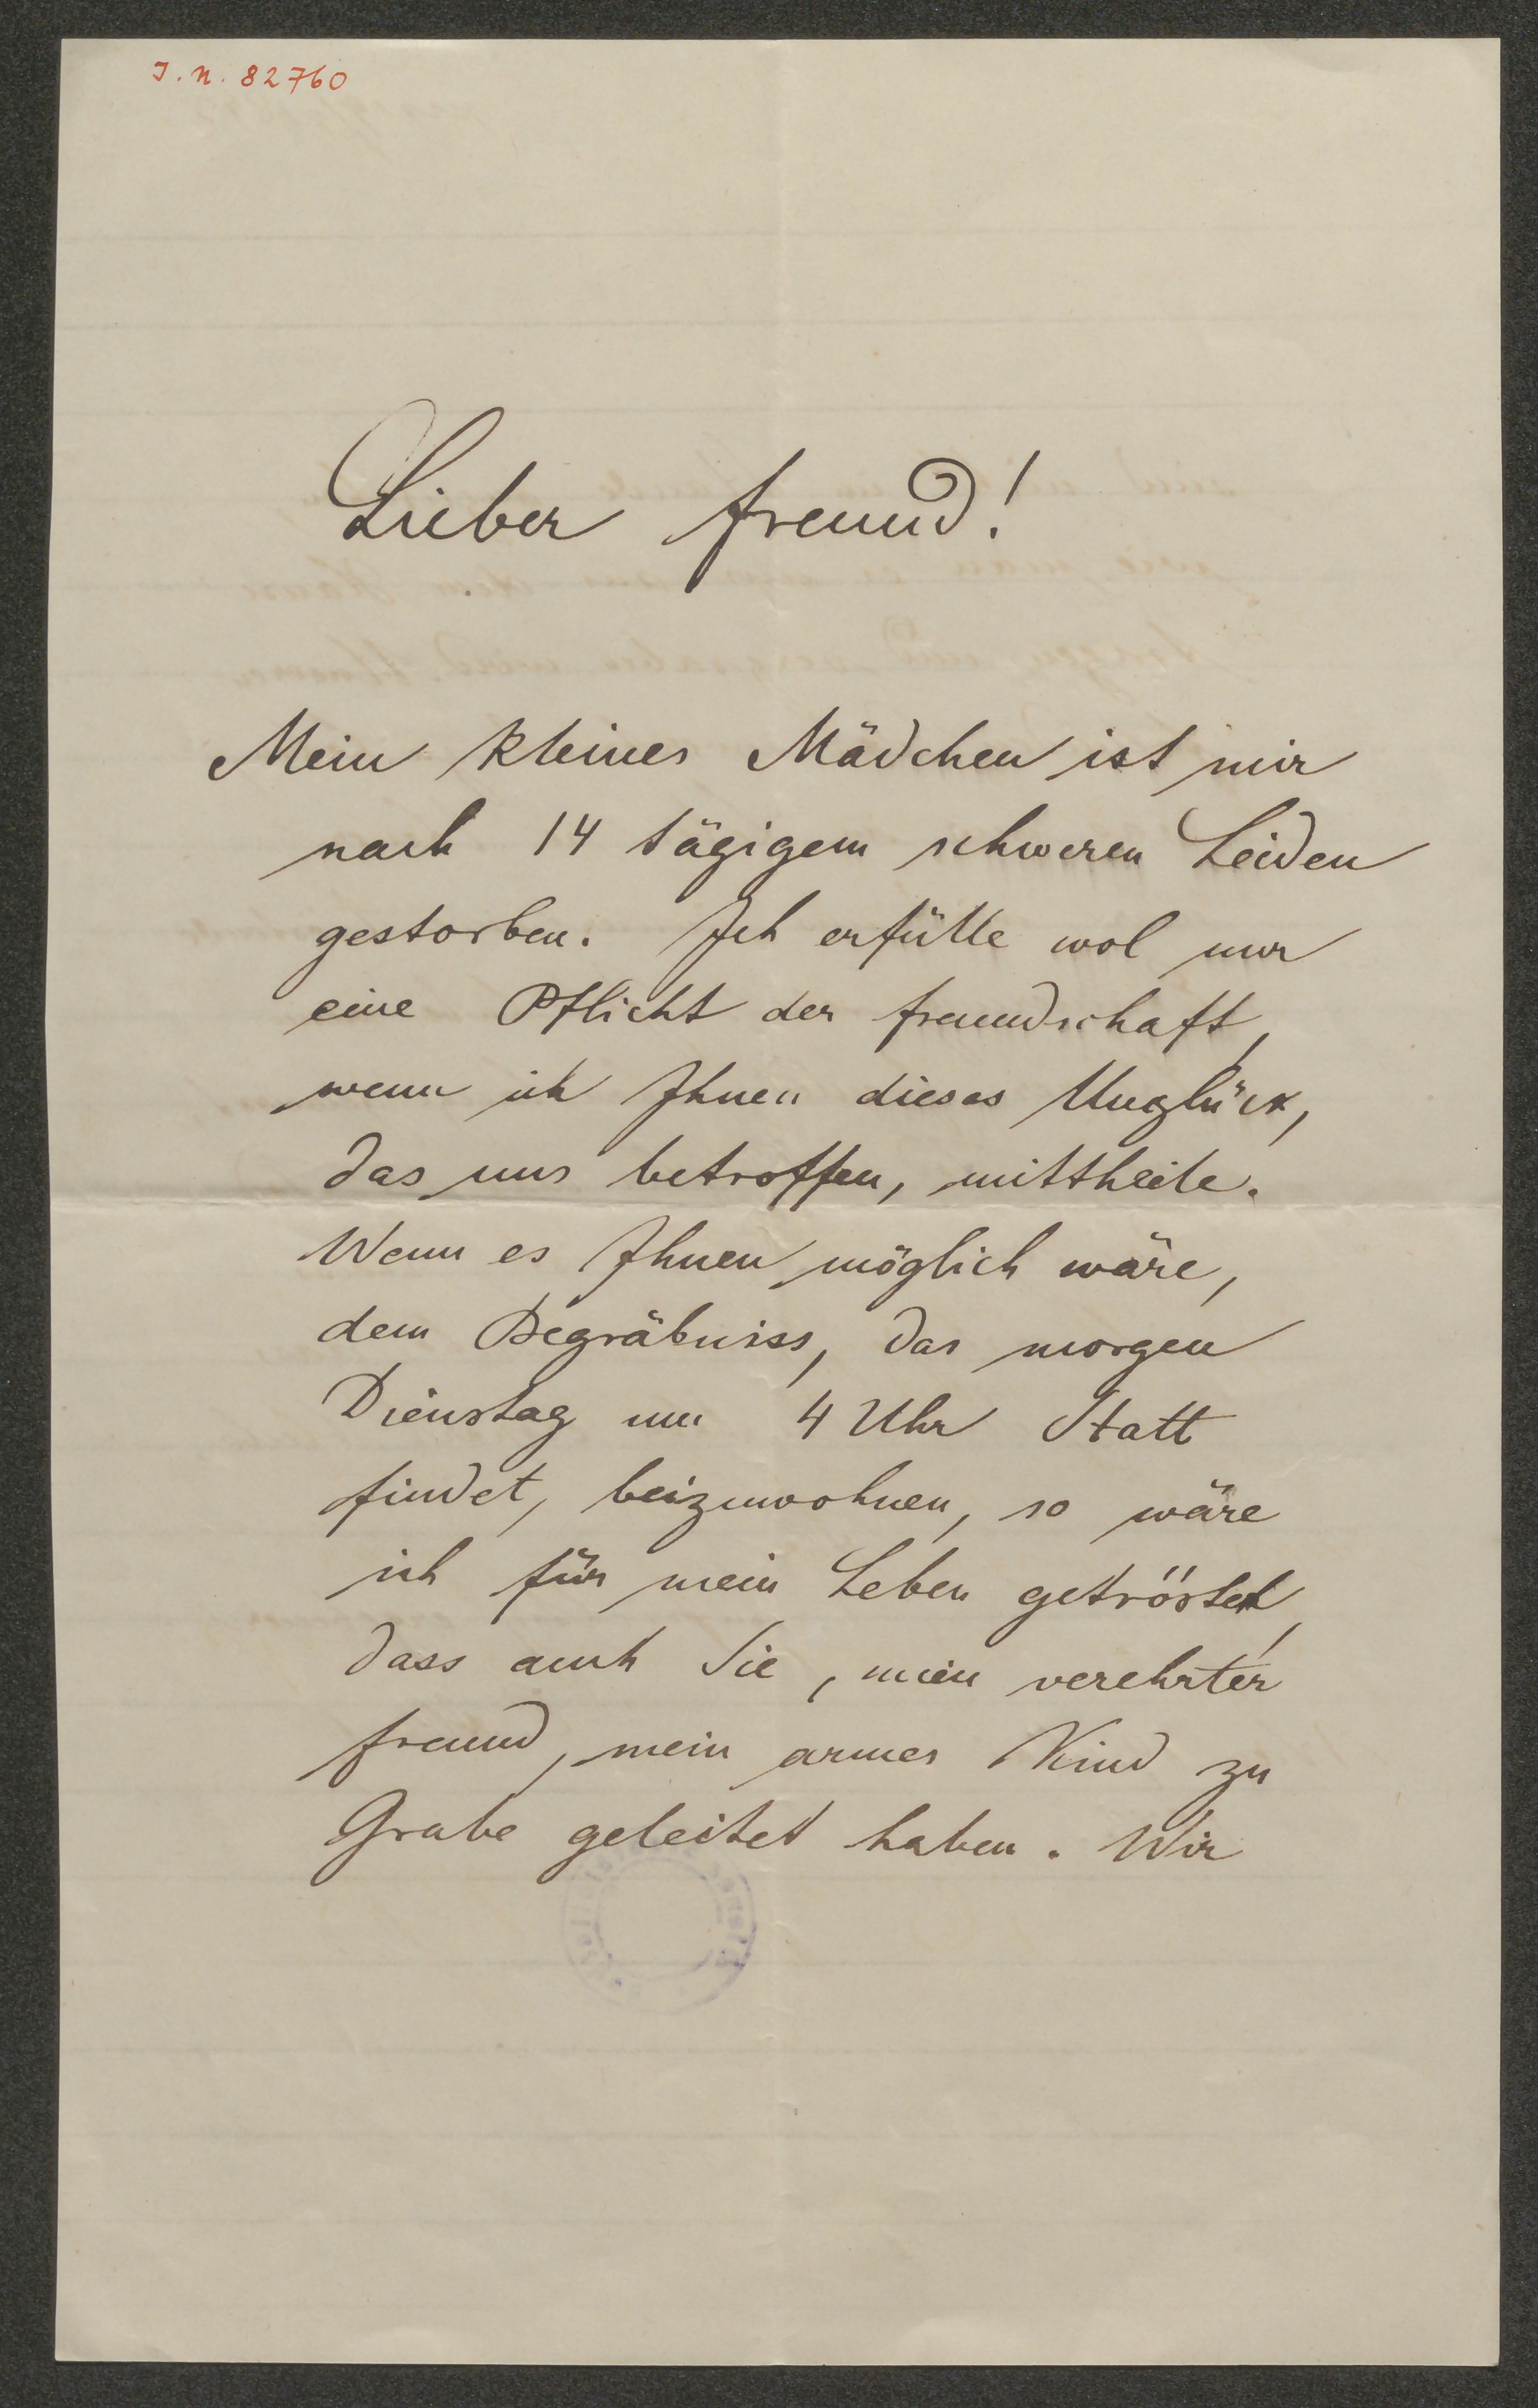 I. N. 82760
Lieber Freund!
Mein kleines Mädchen ist mir
nach 14 tägigem schweren Leiden
gestorben. Ich erfülle wol nur
eine Pflicht der Freundschaft,
wenn ich Ihnen dieses Unglück,
das uns betroffen, mittheile.
Wenn es Ihnen möglich wäre,
dem Begräbniss, das morgen
Dienstag um 4 Uhr Statt
findet, beizuwohnen, so wäre
ich für mein Leben getröstet,
dass auch Sie, mein verehrter
Freund, mein armes Kind zu
Grabe geleitet haben. Wir